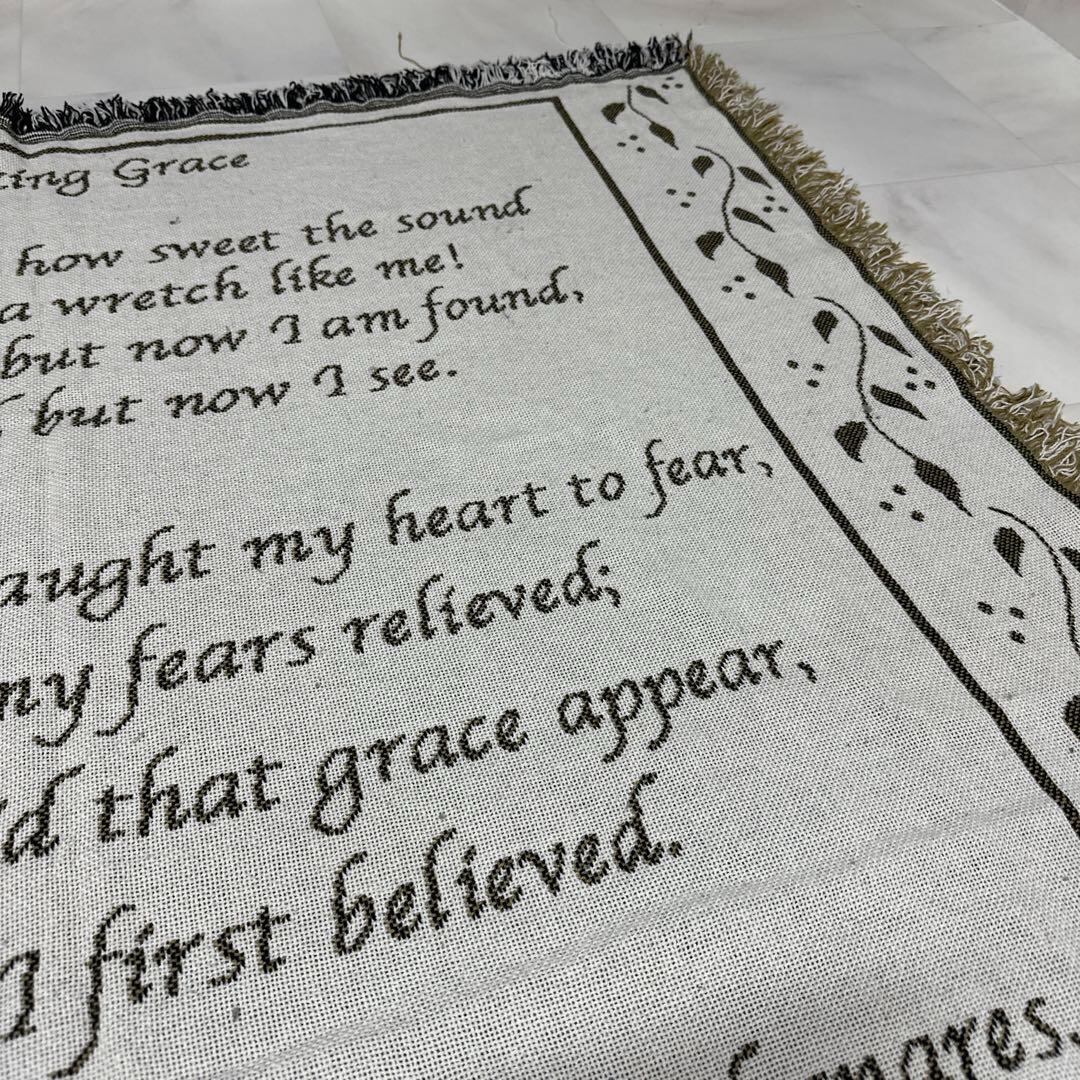 Grace
how sweet the sound
a wretch like me!
but now I am found,
but now I see.
my heart to fear,
my fears relieved;
that grace appear,
I first believed.